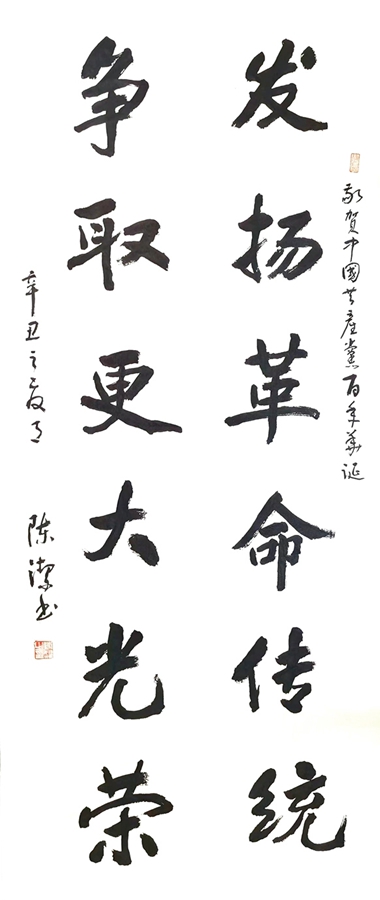 敬贺中國共產黨百年華诞
发扬革命传统
争取更大光荣
辛丑之夏月
陈潔书